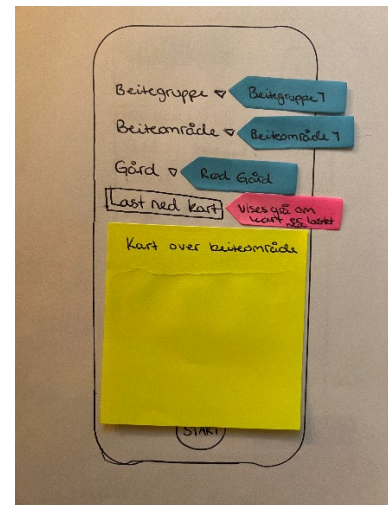 Beitegruppe Beitegruppe 1
Beiteområde Beiteområde 1
Gård Rød Gård
Last ned kart Vises grå om
kart er lastet
ned
Kart over beiteområde
START